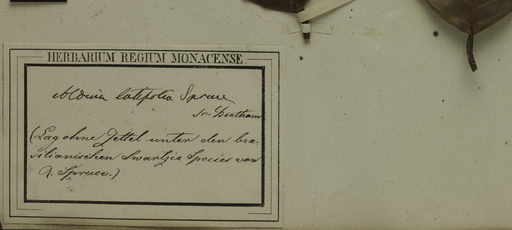 HERBARIUM REGIUM MONACENSE
Aldina latifolia Spruce
sec. Bentham
(Lag ohne Zettel unter den bra-
silianischen Swartzia Species von
R. Spruce.)